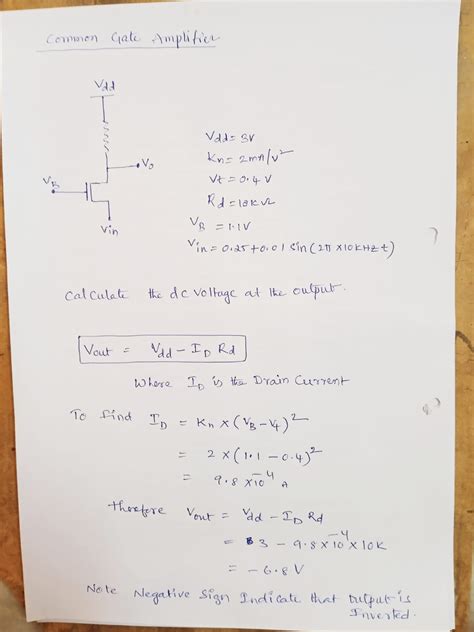 Common Gate Amplifier
Vdd
Vo
VB
Vin
Vdd = 3V
Kn = 2mA/V²
Vt = 0.4V
Rd = 10KΩ
VB = 1.1V
Vin = 0.25+0.01 Sin (2π × 10KHz t)
Calculate the dc voltage at the output.
Vout = Vdd - ID Rd
Where ID is the Drain Current
To find ID = Kn × (VB - Vt)²
= 2 × (1.1 - 0.4)²
= 9.8 × 10⁻⁴ A
Therefore Vout = Vdd - ID Rd
= 3 - 9.8 × 10⁻⁴ × 10K
= -6.8 V
Note Negative Sign Indicate that output is
Inverted.